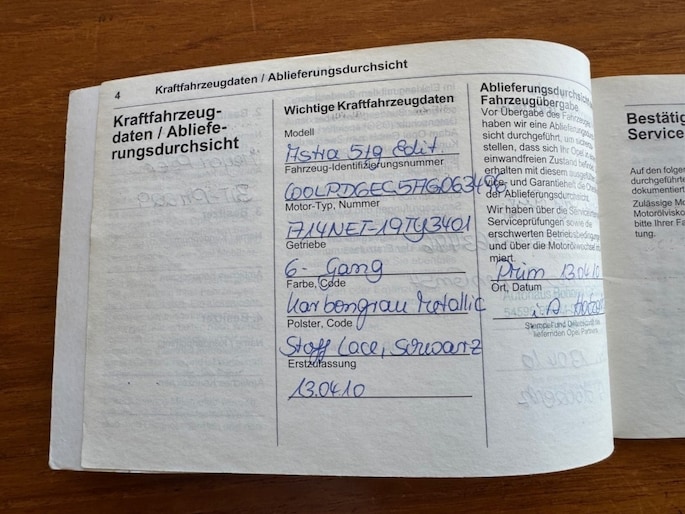 4 Kraftfahrzeugdaten / Ablieferungsdurchsicht
Kraftfahrzeug-
daten / Abliefe-
rungsdurchsicht
Wichtige Kraftfahrzeugdaten
Modell
Astra 5tg Edit.
Fahrzeug-Identifizierungsnummer
Motor-Typ, Nummer
A14NET-19TY3401
Getriebe
6- Gang
Farbe, Code
Karbongrau Metallic
Polster, Code
Stoff Lace, Schwarz
Erstzulassung
13.04.10
Ablieferungsdurchsicht
Fahrzeugübergabe
Vor Übergabe des Fahrzeugs
haben wir eine Ablieferungs
sicht durchgeführt, um sicherzu
stellen, dass sich Ihr Opel in
einwandfreien Zustand befindet
erhalten mit diesem
und Garantieheft die
der Ablieferungsdurchsicht.
Wir haben über die
Serviceprüfungen sowie die
erschwerten Betriebsbedingung
und über die Motorölwechsel
miert.
Prüm 13.04.10
Ort, Datum
i.A.
Stempel und Unterschrift des
liefernden Opel Partners
Bestätig
Service
Auf den folgen
durchgeführte
dokumentiert
Zulässige Mo
Motorölvisko
bitte Ihrer Fa
tung.